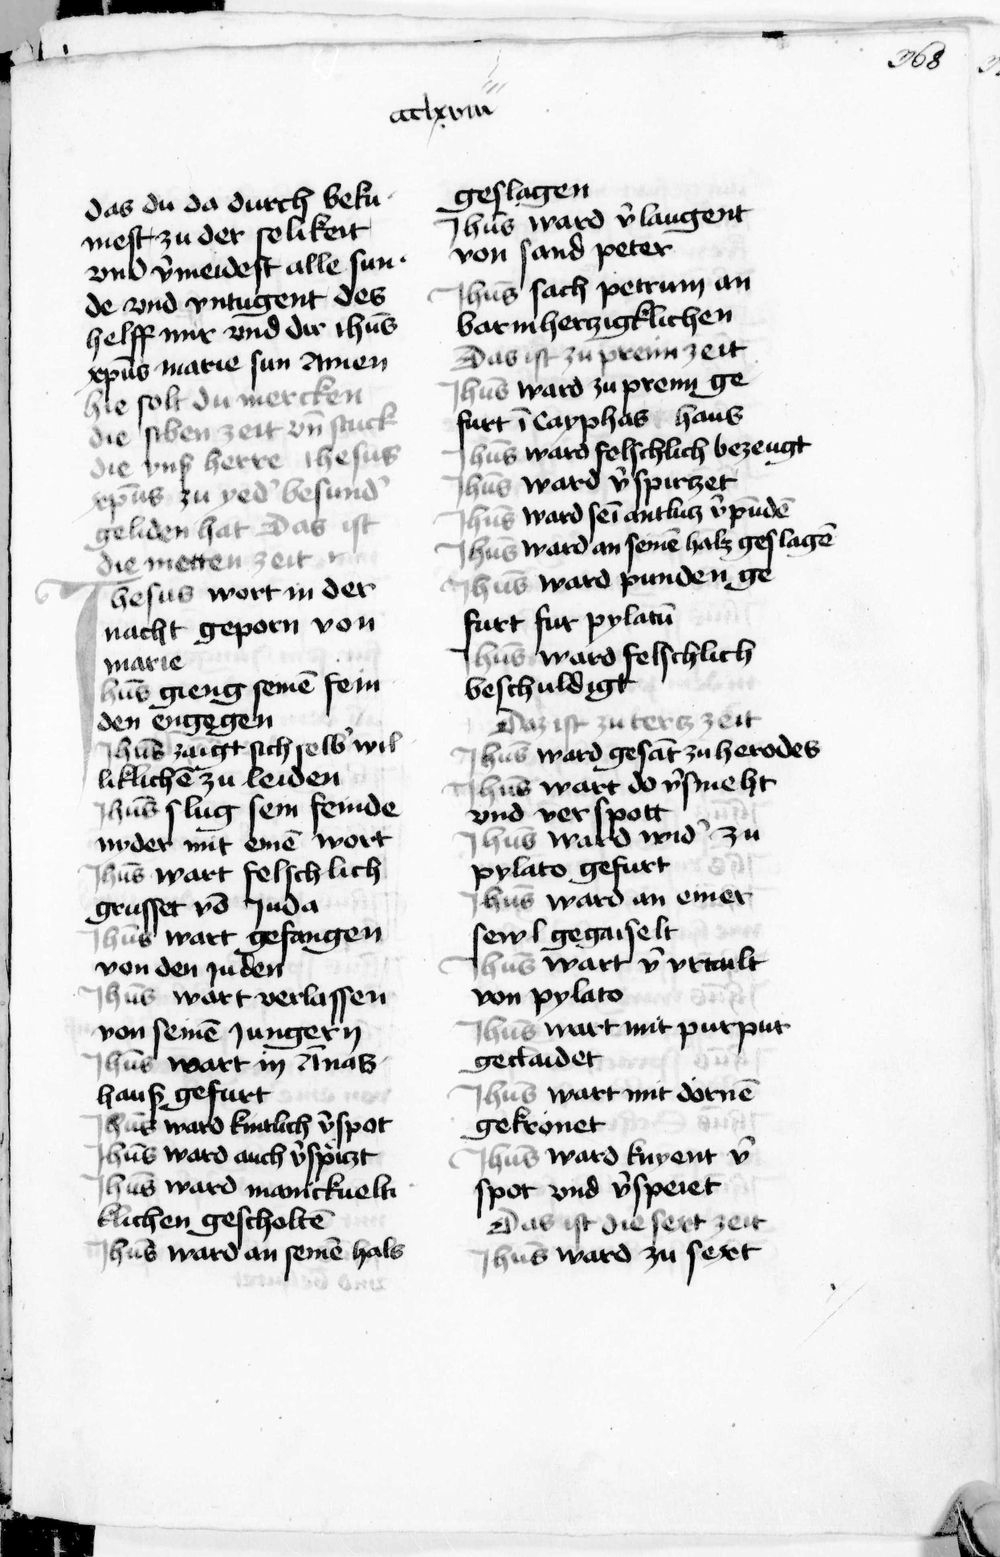 368
ccclxviii
das du da durch beku
mest zu der selikeit
vnd v̄meidest alle sun
de vnd vntugent des
helff mir vnd dir ihūs
xp̄us marie sun Amen
hie solt du mercken
die siben zeit vn̄ stuck
die vnß herre ihesus
xp̄us zu yed᾽ besund᾽
geliden hat Das ist
die metten zeit
Ihesus wort in der
nacht geporn von
marie
Ihūs gieng seinē fein
den engegen
Ihūs zaigt sich selb᾽ wil
liklichē zu leiden
Ihūs slug sein feinde
nyder mit einē wort
Ihūs wart felschlich
grusset vō Juda
Ihūs wart gefangen
von den juden
Ihūs wart verlassen
von seinē Jungern
Ihūs wart in Annas
hauß gefurt
Ihūs ward kintlich v̄spot
Ihūs ward auch v̄spiczt
Ihūs ward manickuelti
klichen gescholtē
Ihūs ward an seinē hals
geslagen
Ihūs ward v̄laugent
von sand peter
Ihūs sach petrum an
barmherzigklichen
Das ist zu preim zeit
Ihūs ward zu preim ge
furt ī Cayphas haus
Ihūs ward felschlich bezeugt
Ihūs ward v̄spirczet
Ihūs ward seī antlucz v̄pūdē
Ihūs ward an seinē halz geslagē
Ihūs ward punden ge
furt fur pylatū
Ihūs ward felschlich
beschuldigt
Daz ist zu tercz zeit
Ihūs ward gesāt zu herodes
Ihūs wart do v̄smeht
vnd verspott
Ihūs ward wid᾽ zu
pylato gefurt
Ihūs ward an einer
sewl gegaiselt
Ihūs wart v̄urtailt
von pylato
Ihūs wart mit purpur
geclaidet
Ihūs wart mit dornē
gekrönet
Ihūs ward knyent v̄
spot vnd v̄speiet
Das ist die sext zeit
Ihūs ward zu sext